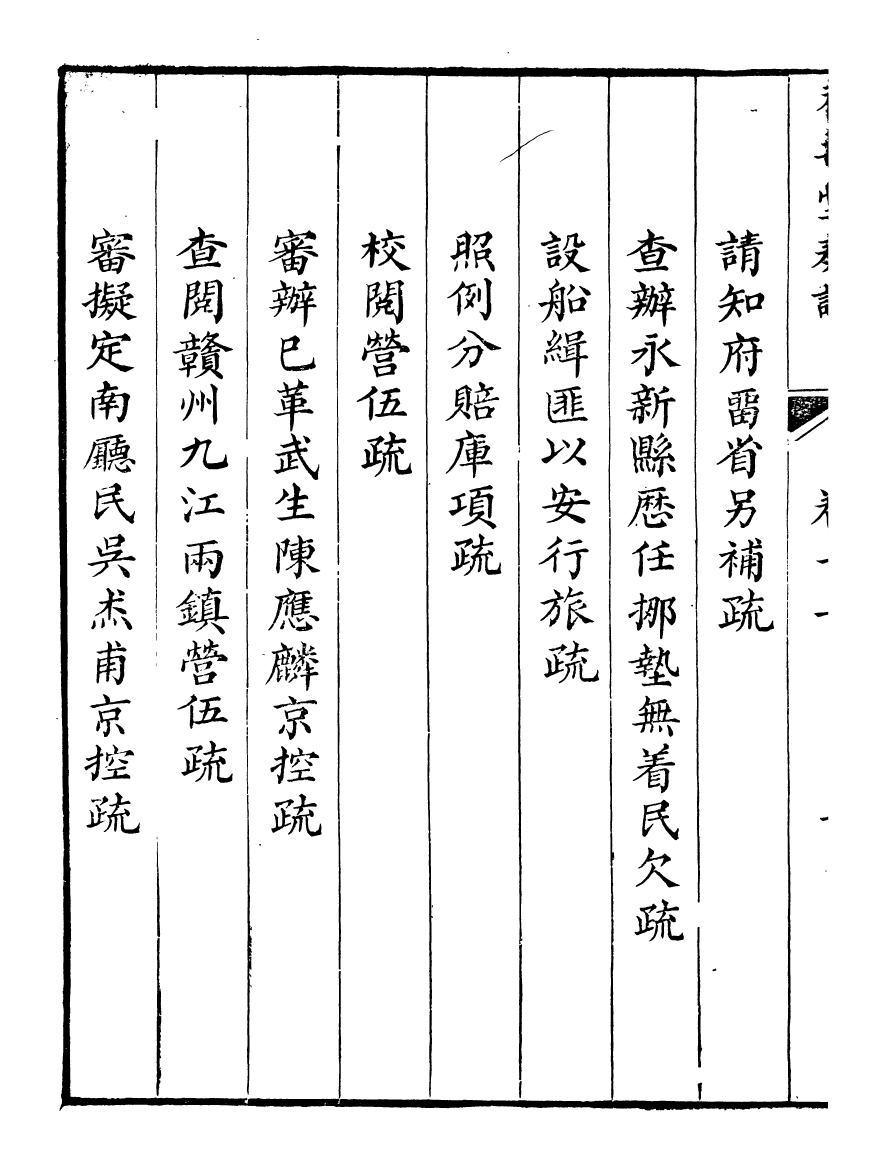 請知府畱省另補疏
查辦永新縣歴任挪墊無着民欠疏
設船緝匪以安行旅疏
照例分賠庫項疏
校閱營伍疏
審辦已革武生陳應麟京控疏
查閱贛州九江兩鎮營伍疏
審擬定南廳民吳杰甫京控疏